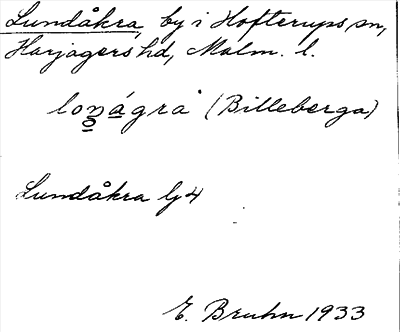 Lundåkra, by i Hofterups sn,
Harjagers hd, Malm. l.
(Billeberga)
Lundåkra lj 4
E. Bruhn 1933